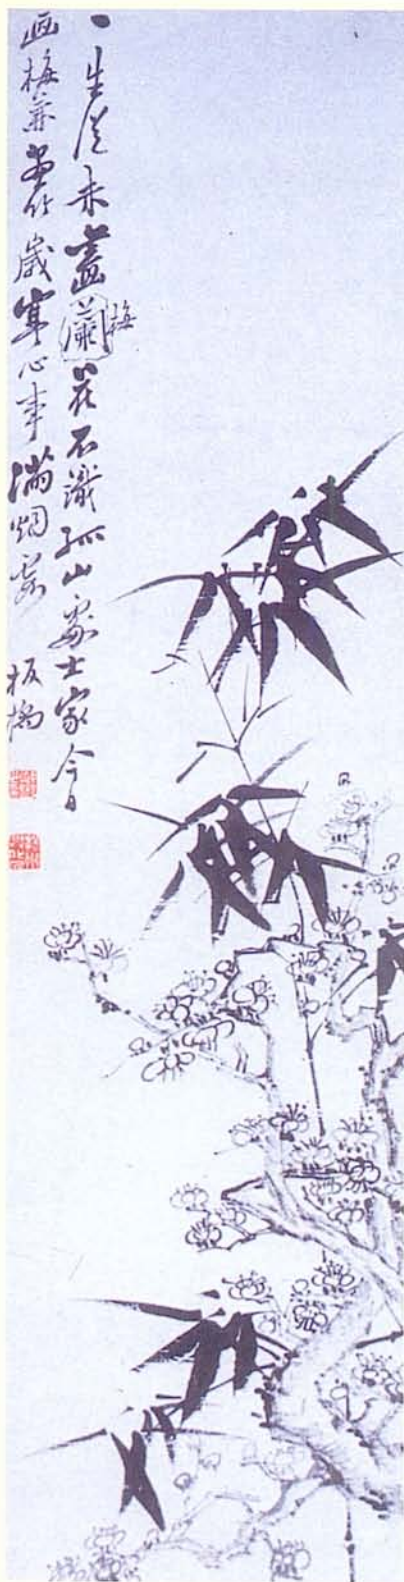 一生從未畫蘭梅花不識孤山處士家今日
画梅兼畫竹歲寒心事滿烟霞 板橋